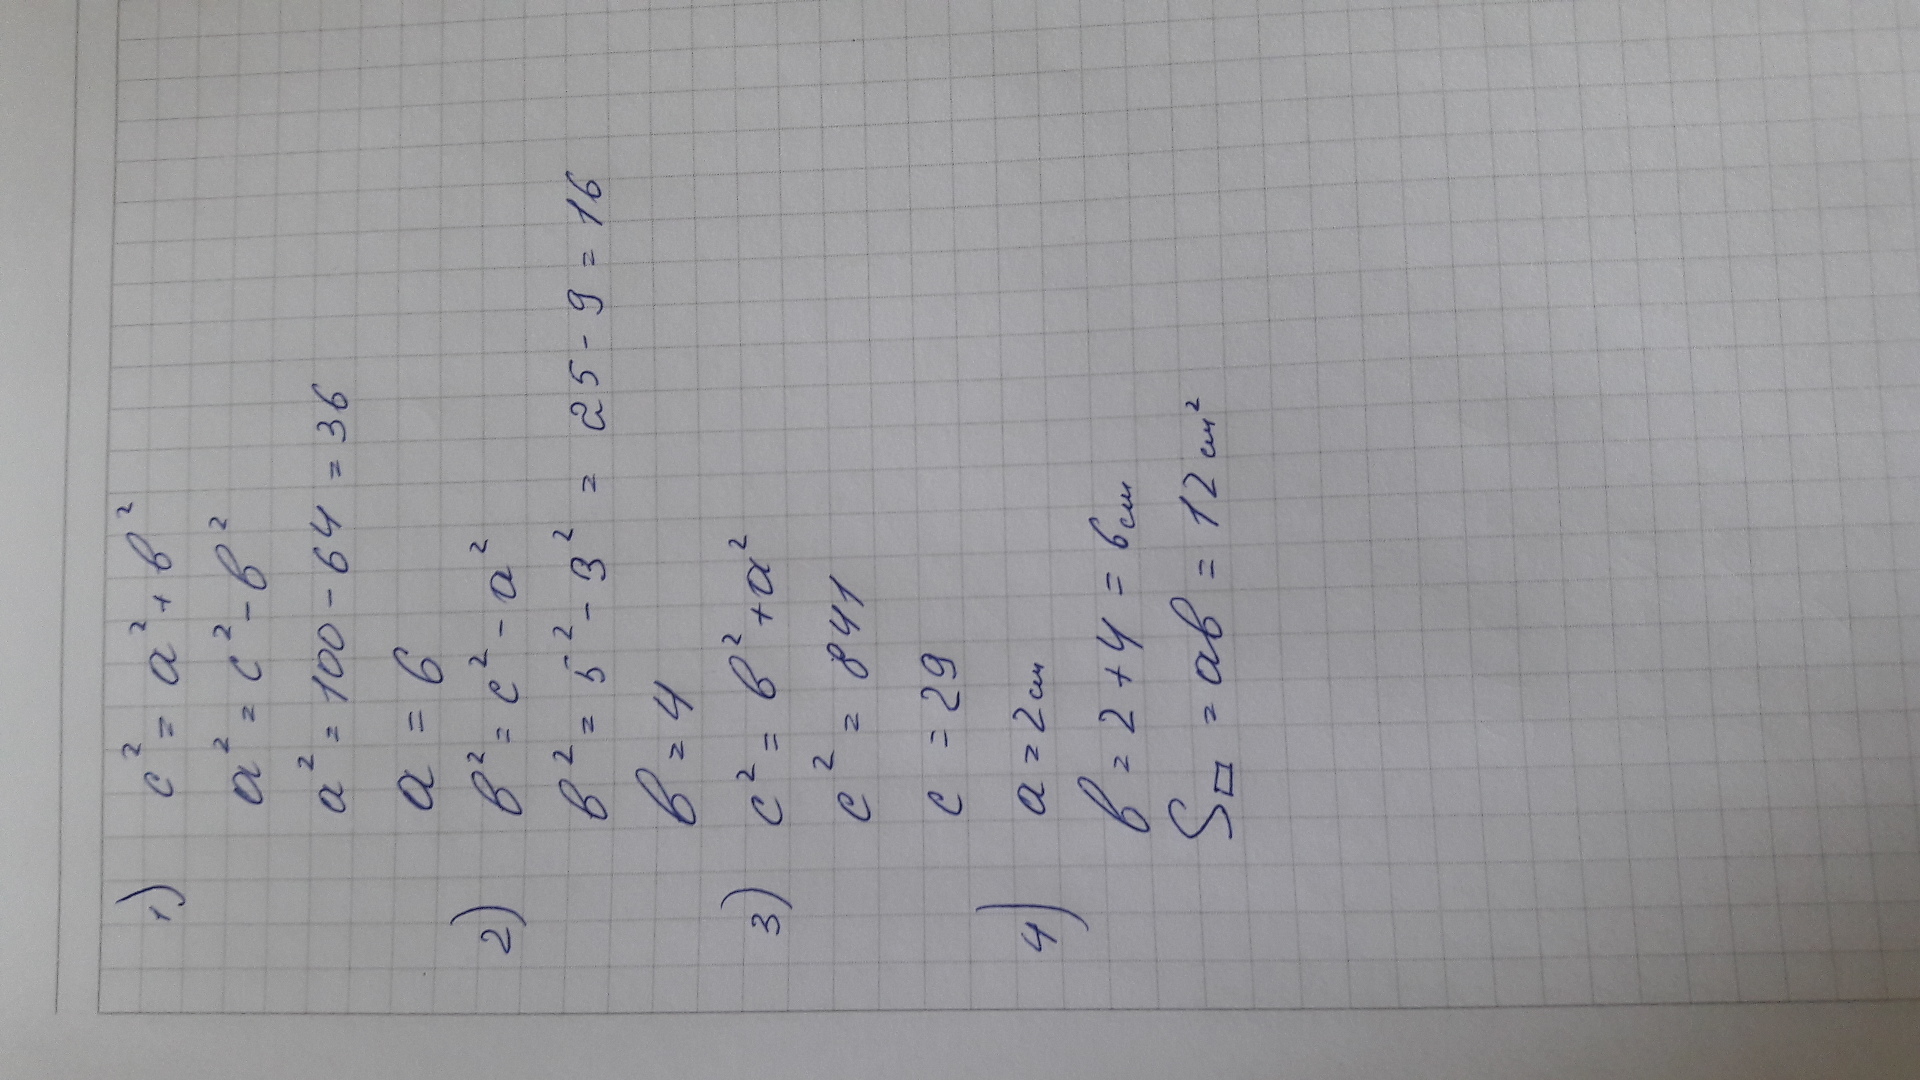 1) c² = a² + в²
a² = c² - в²
a² = 100 - 64 = 36
a = 6
2) в² = c² - a²
в² = 5² - 3² = 25 - 9 = 16
в = 4
3) c² = в² + a²
c² = 841
c = 29
4) a = 2 см
в = 2 + 4 = 6 см
S▭ = aв = 12 см²